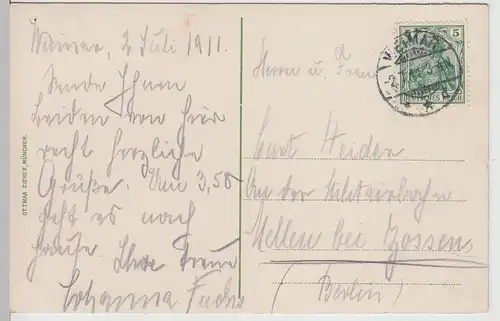 Weimar, 2 Juli 1911.
Sende Ihnen
beiden von hier
recht herzliche
Grüße. Um 3,58
geht es nach
Hause. Ihre Treue
Johanna Fuchs
Herrn u. Frau
Curt Heider
An der Militärbahn
Mellen bei Zossen
(Berlin)
OTTMAR ZIEHER, MÜNCHEN.
WEIMAR
5
DEUTSCHES REICH